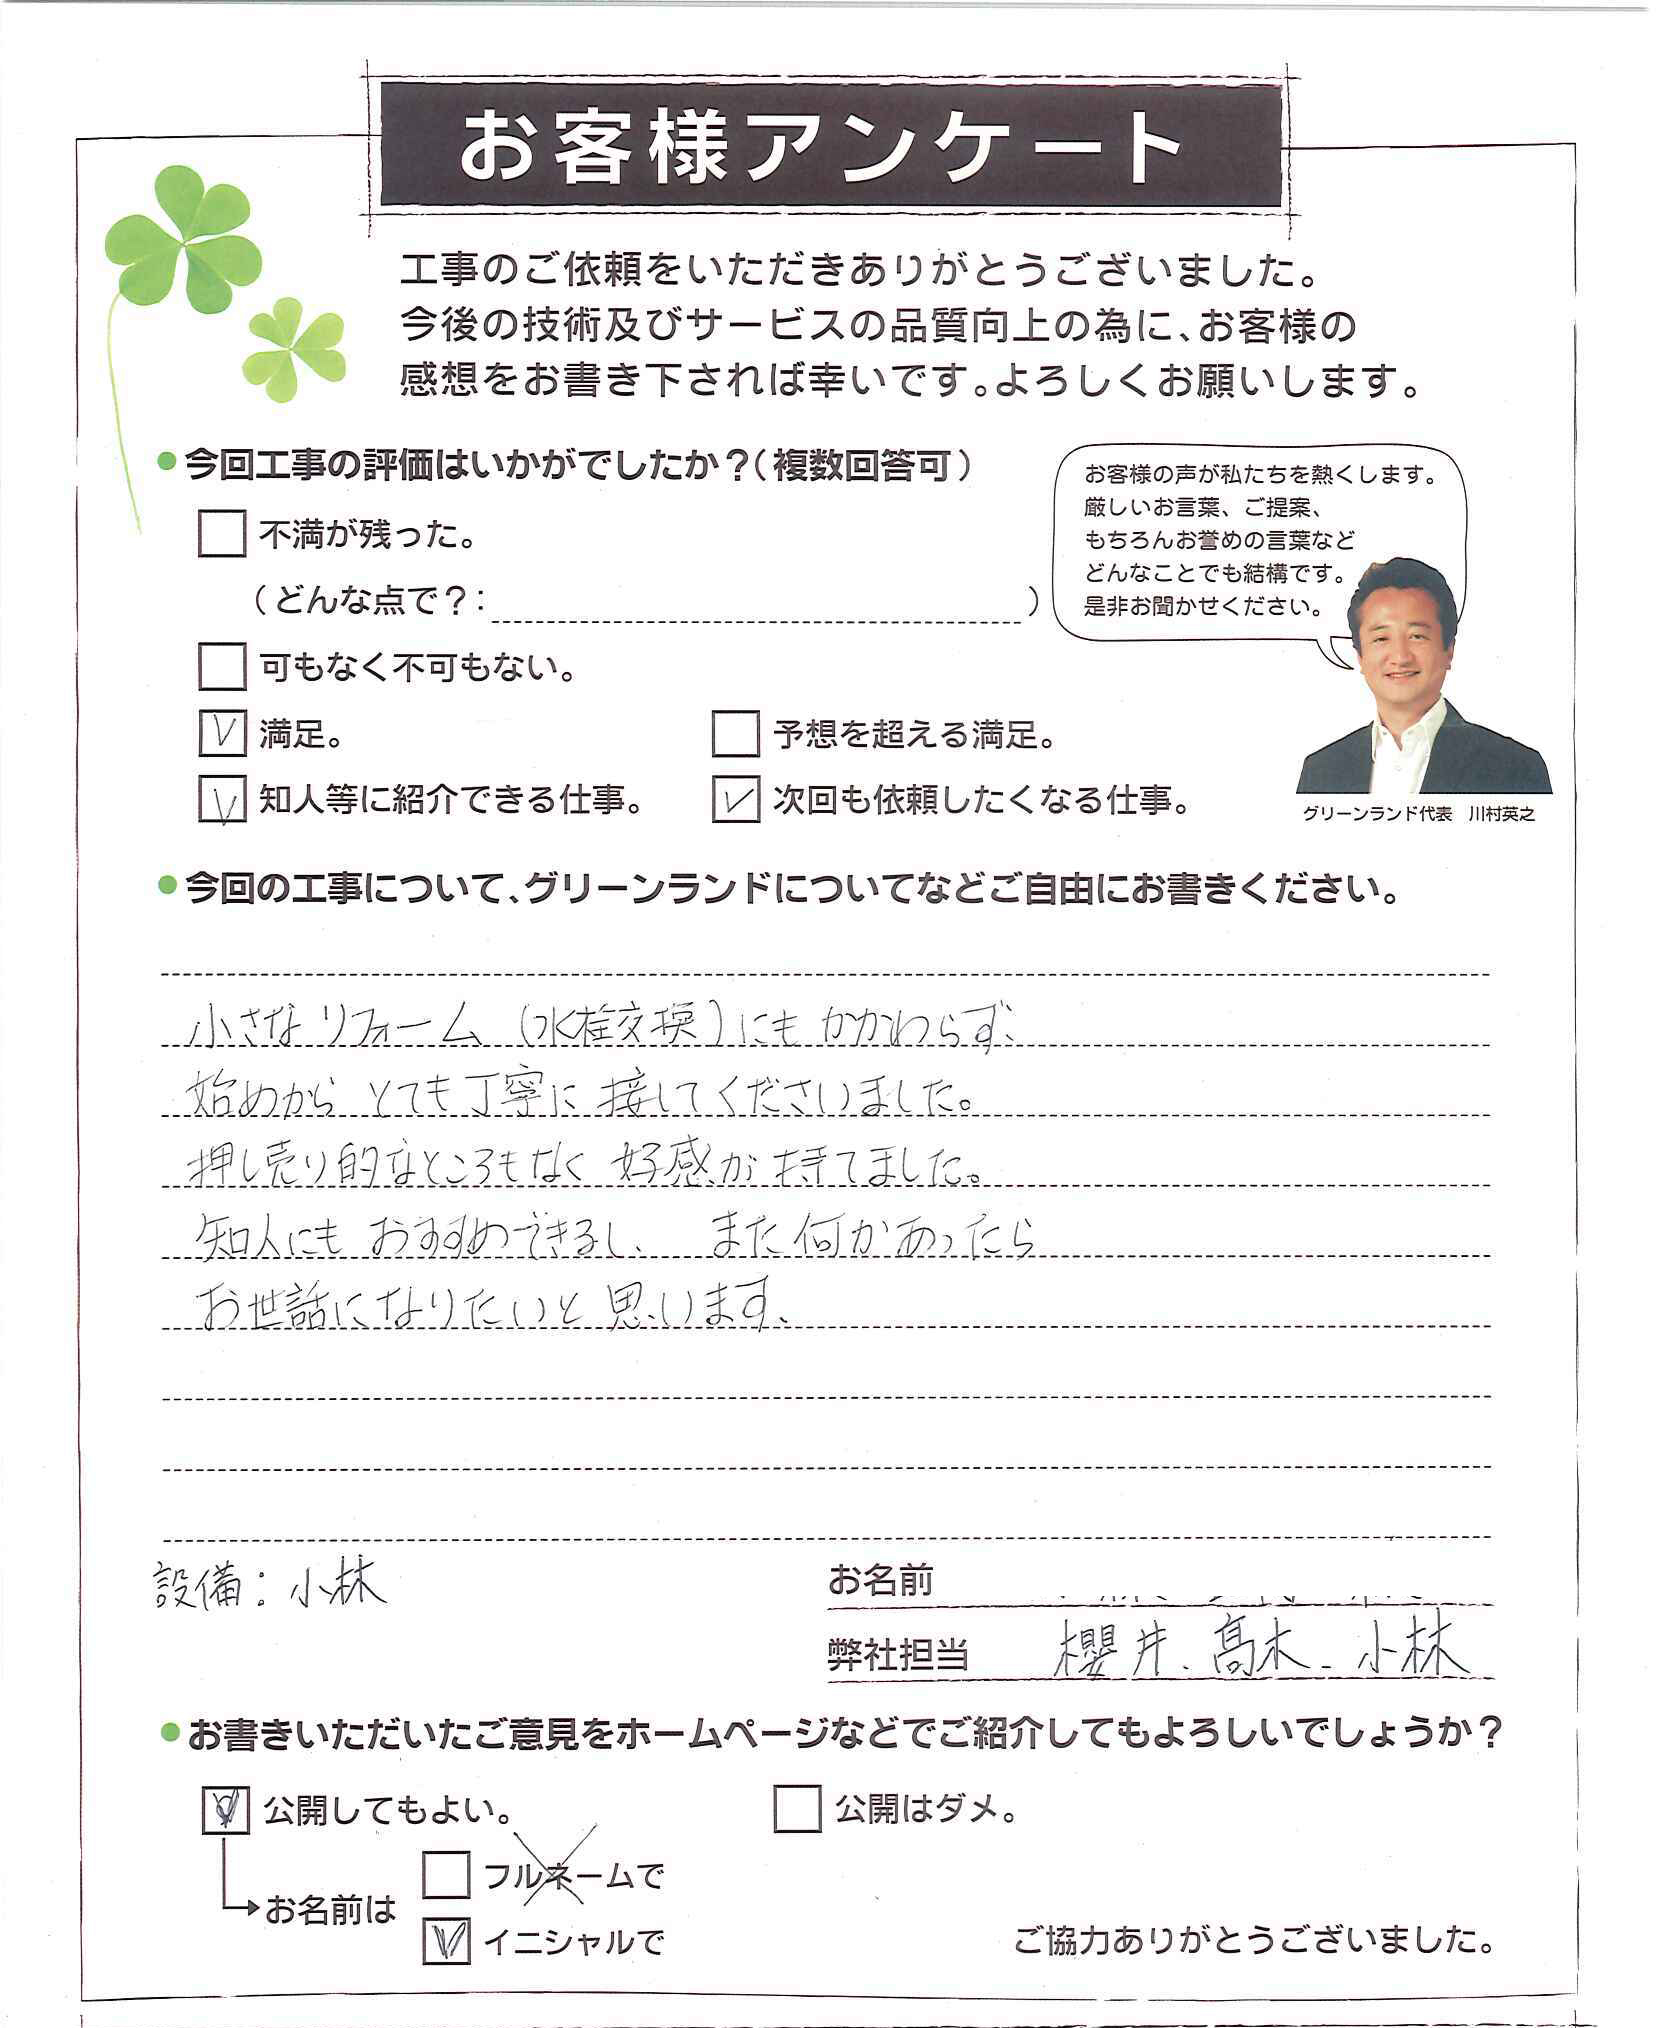 お客様アンケート
工事のご依頼をいただきありがとうございました。
今後の技術及びサービスの品質向上の為に、お客様の
感想をお書き下されば幸いです。よろしくお願いします。
●今回工事の評価はいかがでしたか？（複数回答可）
お客様の声が私たちを熱くします。
厳しいお言葉、ご提案、
もちろんお誉めの言葉など
どんなことでも結構です。
是非お聞かせください。
不満が残った。
（どんな点で？： ）
可もなく不可もない。
満足。 予想を超える満足。
知人等に紹介できる仕事。 次回も依頼したくなる仕事。
グリーンランド代表　川村英之
●今回の工事について、グリーンランドについてなどご自由にお書きください。
小さなリフォーム（水栓交換）にもかかわらず、
始めから とても丁寧に 接してくださいました。
押し売り的なところもなく 好感が 持てました。
知人にも おすすめできるし、 また何かあったら
お世話になりたいと 思います、
設備：小林
お名前
弊社担当 櫻井、髙木、小林
●お書きいただいたご意見をホームページなどでご紹介してもよろしいでしょうか？
公開してもよい。 公開はダメ。
フルネームで
お名前は
イニシャルで
ご協力ありがとうございました。